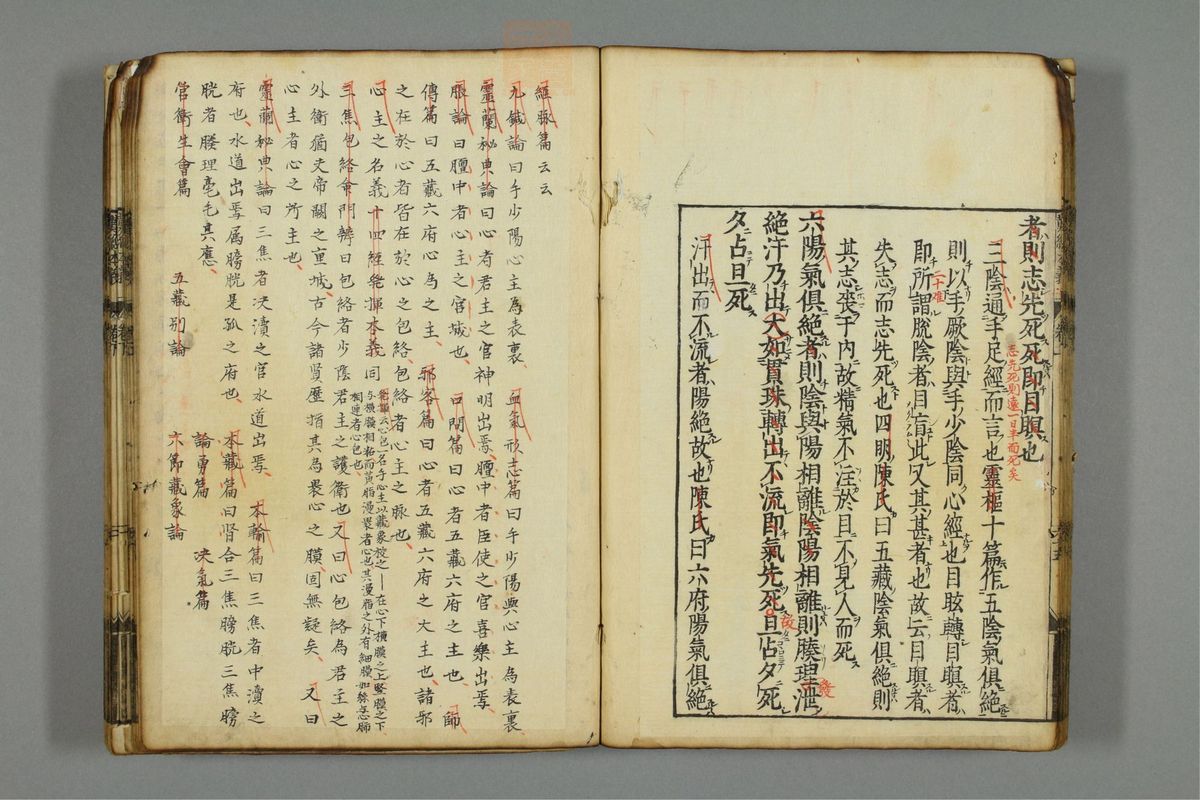 者則志先死死即目瞑也
三陰通手足經而言也靈樞十篇作五陰氣俱絶
志先死則遠一日半而死矣
則以手厥陰與手少陰同心經也目眩轉目瞑者
即所謂脱陰者目盲此又其甚者也故云目瞑者
二十難
失志而志先死也四明陳氏曰五藏陰氣俱絶則
其志喪于内故精氣不注於目不見人而死
六陽氣俱絶者則陰與陽相離陰陽相離則腠理泄
絶汗乃出大如貫珠轉出不流即氣先死旦占夕死
故
夕占旦死
汗出而不流者陽絶故也陳氏曰六府陽氣俱絶
經脉篇云云
九鍼論曰手少陽心主為表裏、 血氣形志篇曰手少陽與心主為表裏
靈蘭秘典論曰心者君主之官神明出焉、膻中者臣使之官喜樂出焉、
脹論曰膻中者心主之宮城也、 口問篇曰心者五藏六府之主也、 師
傳篇曰五藏六府心為之主、 邪客篇曰心者五藏六府之大主也、諸邪
之在於心者皆在於心之包絡、包絡者心主之脉也、
心主之名義十四經發揮本義同
三焦包絡命門辨曰包絡者少陰君主之護衛也又曰心包絡為君主之
外衛猶吏帝闕之重城古今諸賢歴指其為褁心之膜固無疑矣、 又曰
心主者心之所主也、
靈蘭秘典論曰三焦者決瀆之官水道出焉、 本輸篇曰三焦者中瀆之
府也、水道出焉属膀胱是孤之府也、 本藏篇曰腎合三焦膀胱三焦膀
胱者腠理毫毛其應、 論勇篇 決氣篇
營衛生會篇 五藏別論 六節藏象論